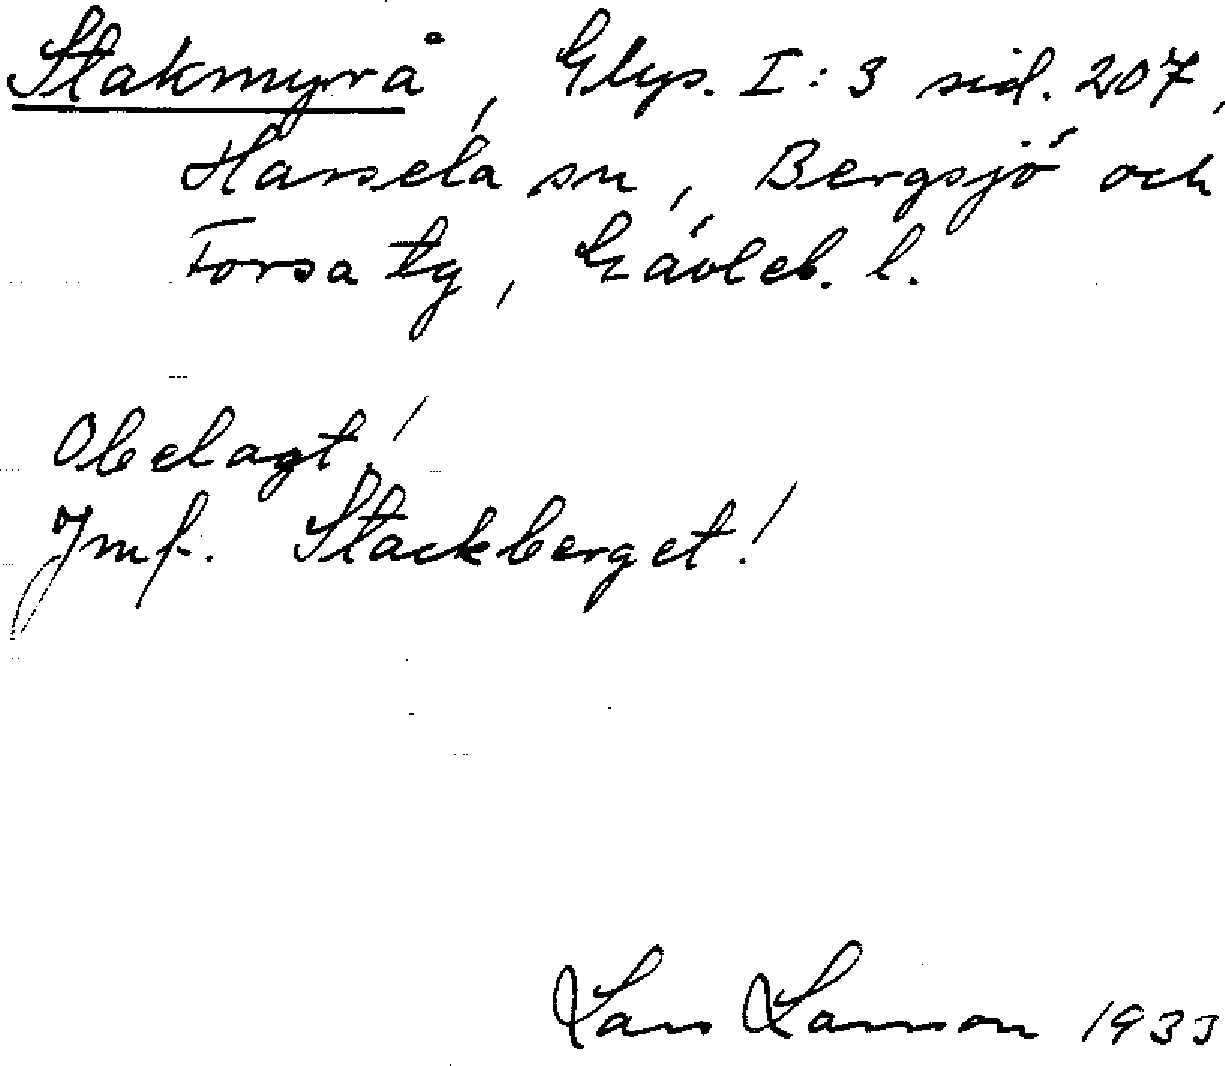 Stakmyrå, Elys. I:3 sid. 207,
Hassela sn, Bergsjö och
Forsa tg, Gävleb. l.
Obelagt!
Jmf. Stackberget!
Lars Larsson 1933